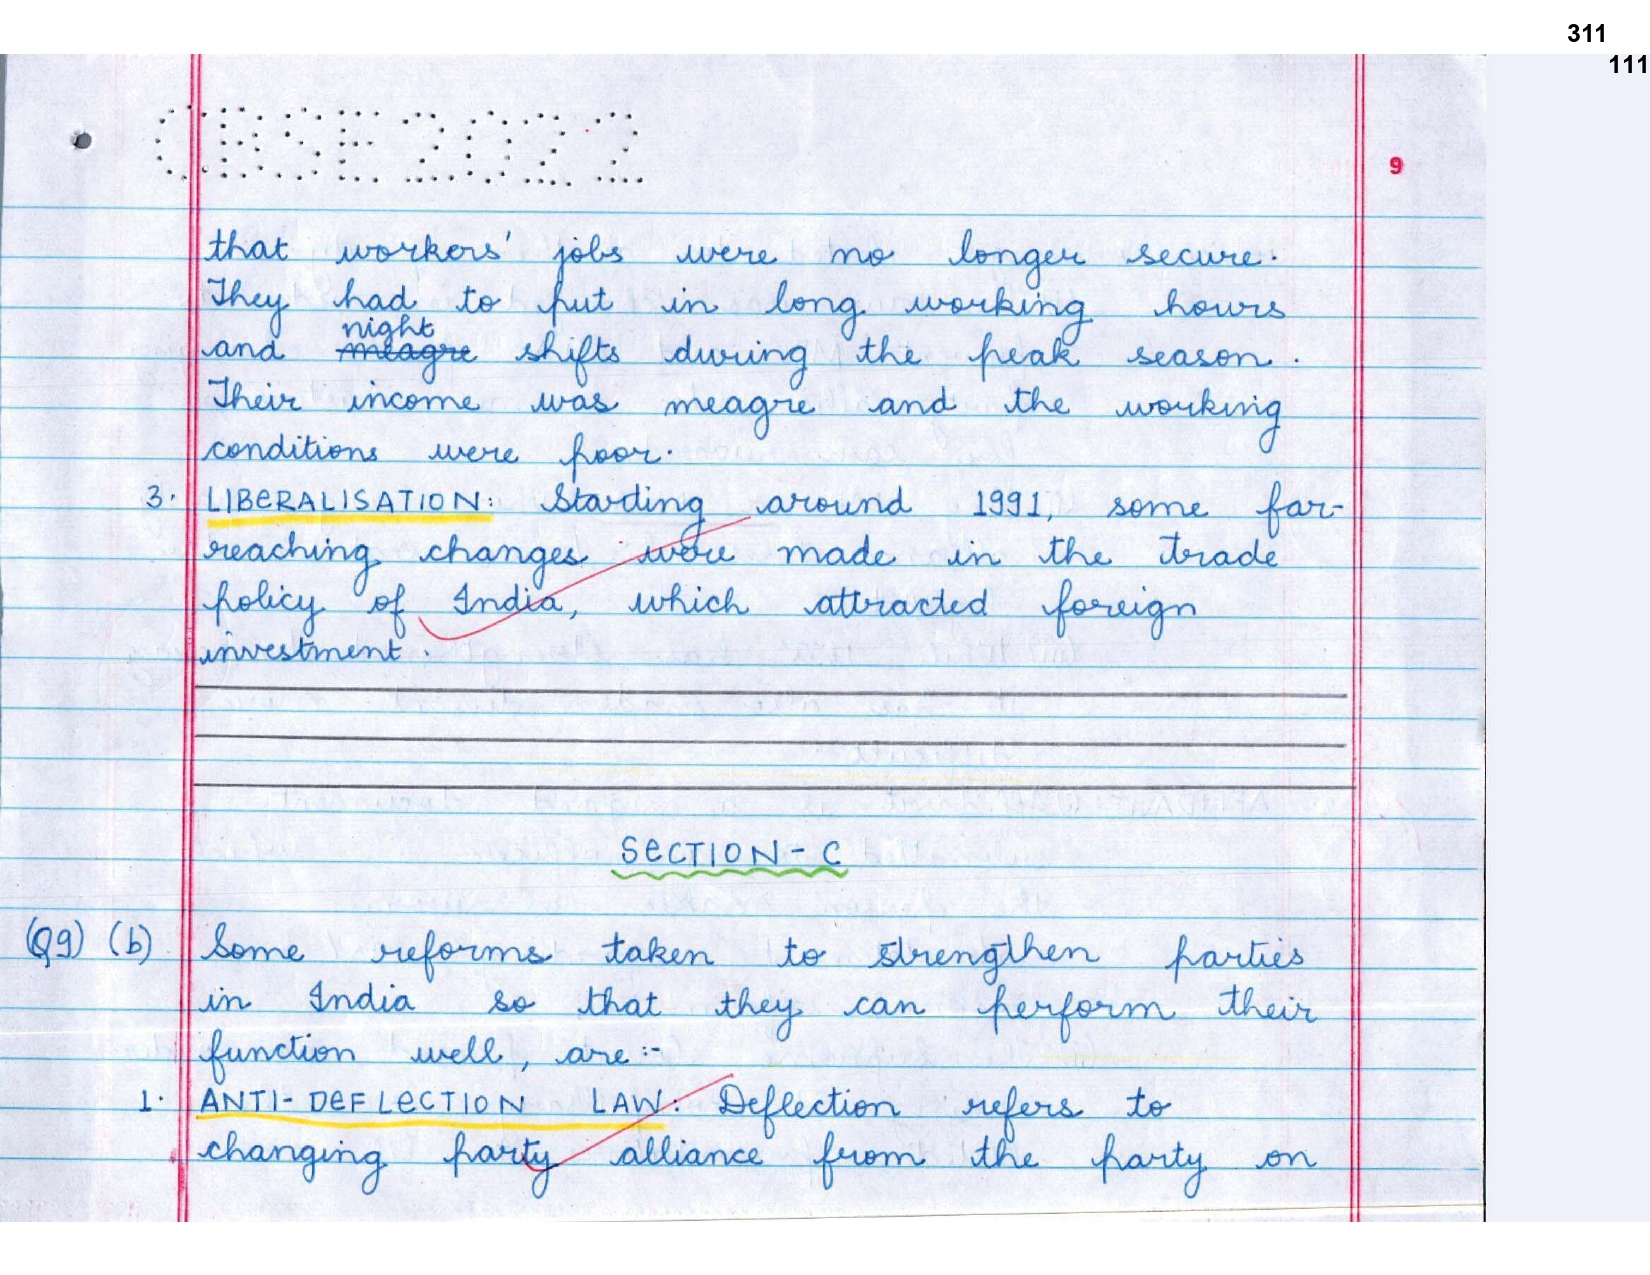 311
111
CBSE2022
9
that workers' jobs were no longer secure.
They had to put in long working hours
night
and meagre shifts during the peak season.
Their income was meagre and the working
conditions were poor.
3. LIBERALISATION: Starting around 1991, some far-
reaching changes were made in the trade
policy of India, which attracted foreign
investment.
SECTION - C
(Q9) (b) Some reforms taken to strengthen parties
in India so that they can perform their
function well, are :-
1. ANTI-DEFLECTION LAW: Deflection refers to
changing party alliance from the party on